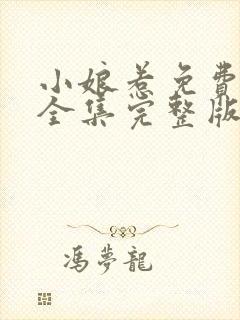 小娘惹免費
全集完整版
馮夢龍